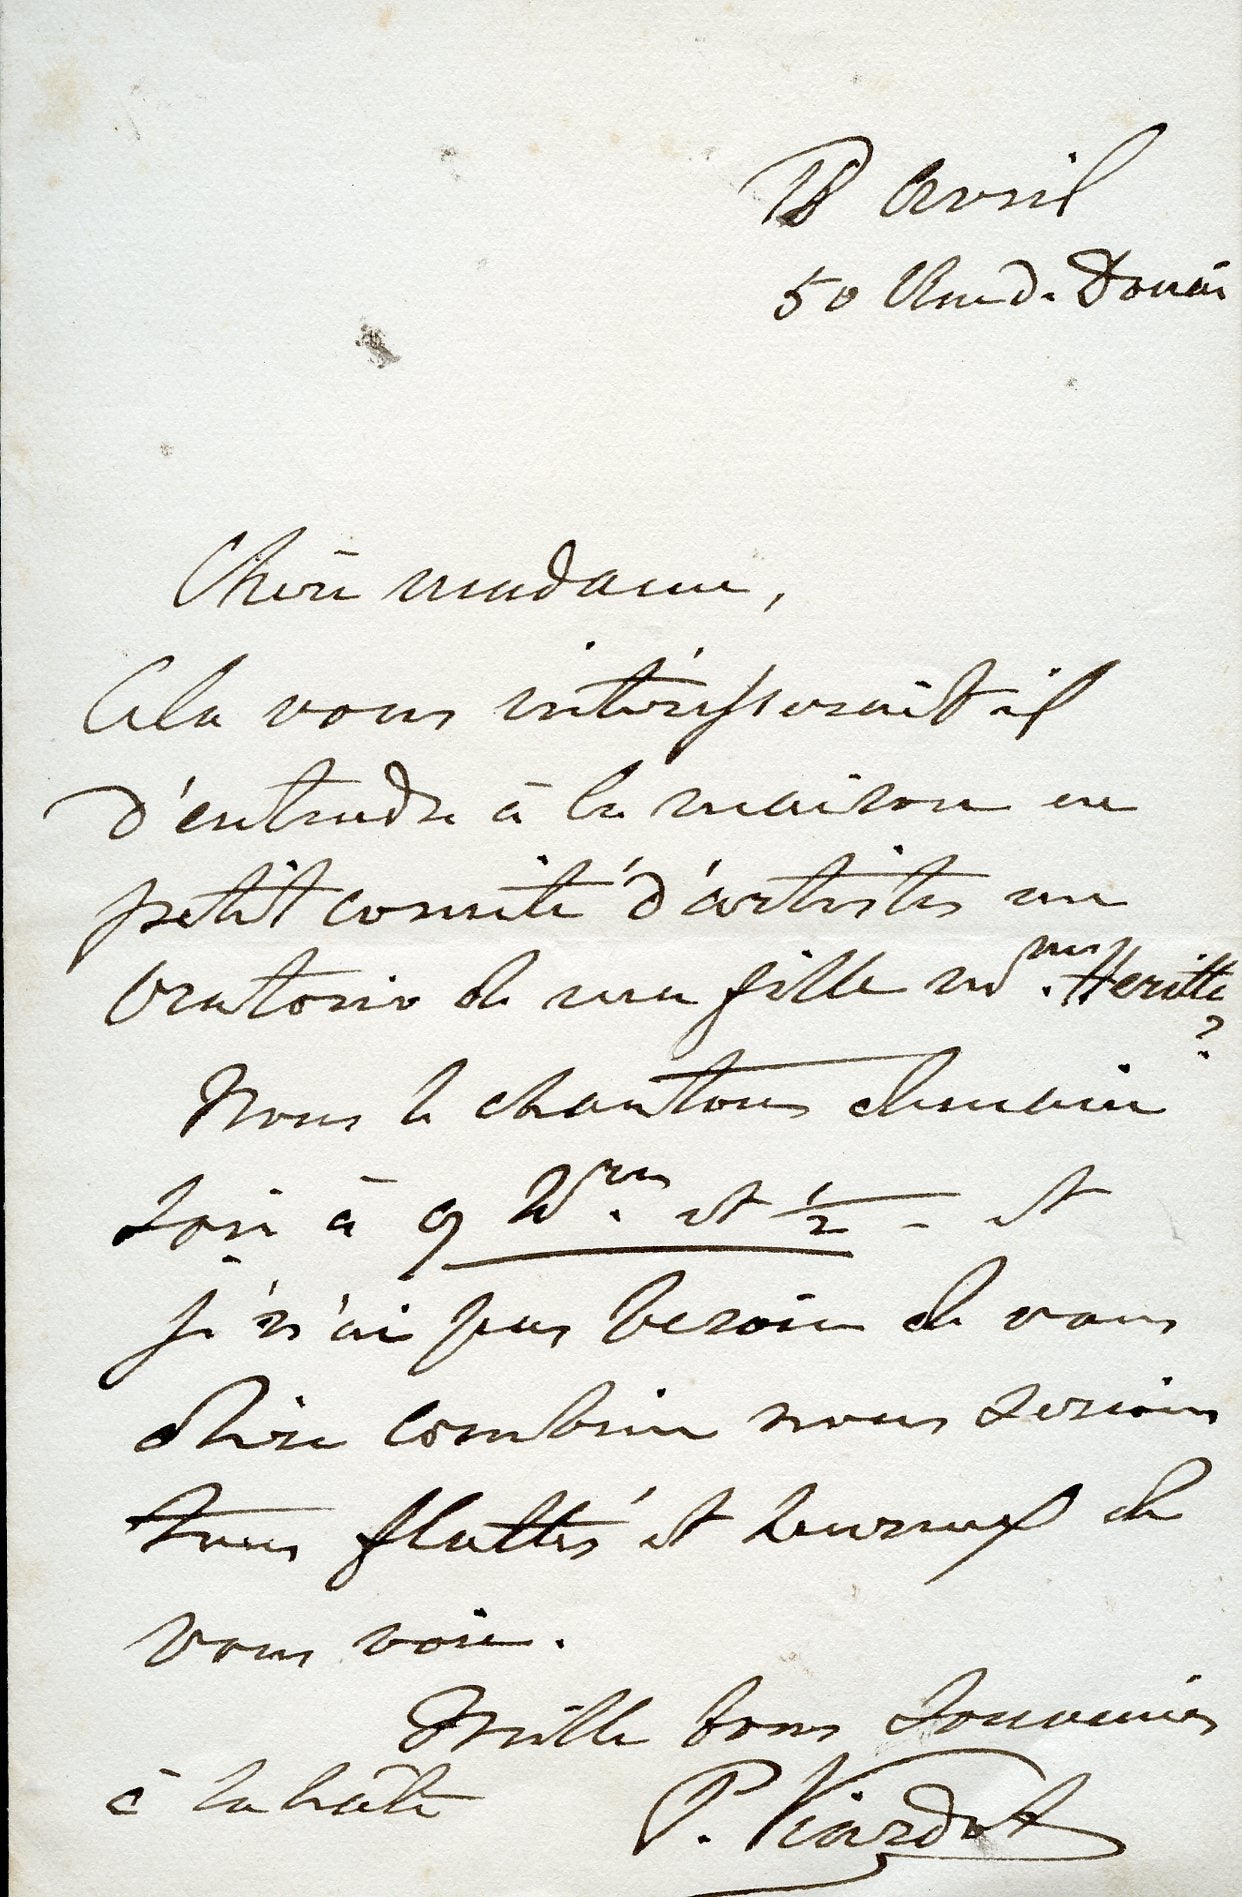 18 Avril
50 Rue de Douai
Chère madame,
Cela vous intéresserait il
d'entendre à la maison en
petit comité d'artistes un
Oratorio de ma fille Md.me Heritte
?
Nous le chantons demain
soir à 9 h.res et ½ - et
je n'ai pas besoin de vous
dire combien nous serions
tous flattés et heureux de
vous voir.
Mille bons souvenirs
à la hâte
P. Viardot